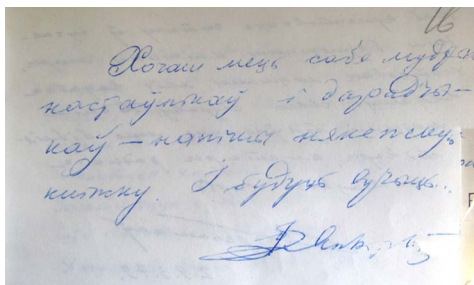 16
Хочаш мець сабе мудрых
настаўнікаў і дарадчы-
каў — напішы
кніжку. І будуць вучыць.